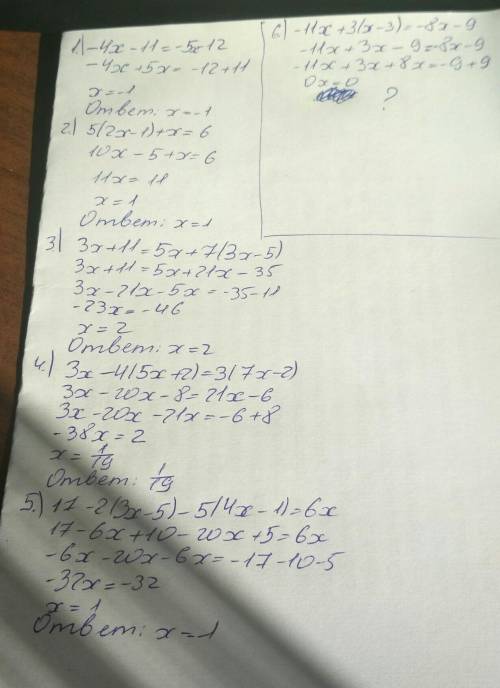 1) -4x-11=-5x-12
-4x+5x=-12+11
x=-1
Ответ: x=-1
2) 5(2x-1)+x=6
10x-5+x=6
11x=11
x=1
Ответ: x=1
3) 3x+11=5x+7(3x-5)
3x+11=5x+21x-35
3x-21x-5x=-35-11
-23x=-46
x=2
Ответ: x=2
4.) 3x-4(5x+2)=3(7x-2)
3x-20x-8=21x-6
3x-20x-21x=-6+8
-38x=2
x=1/19
Ответ: 1/19
5.) 17-2(3x-5)-5(4x-1)=6x
17-6x+10-20x+5=6x
-6x-20x-6x=-17-10-5
-32x=-32
x=1
Ответ: x=1
6) -11x+3(x-3)=-8x-9
-11x+3x-9=-8x-9
-11x+3x+8x=-9+9
0x=0
?